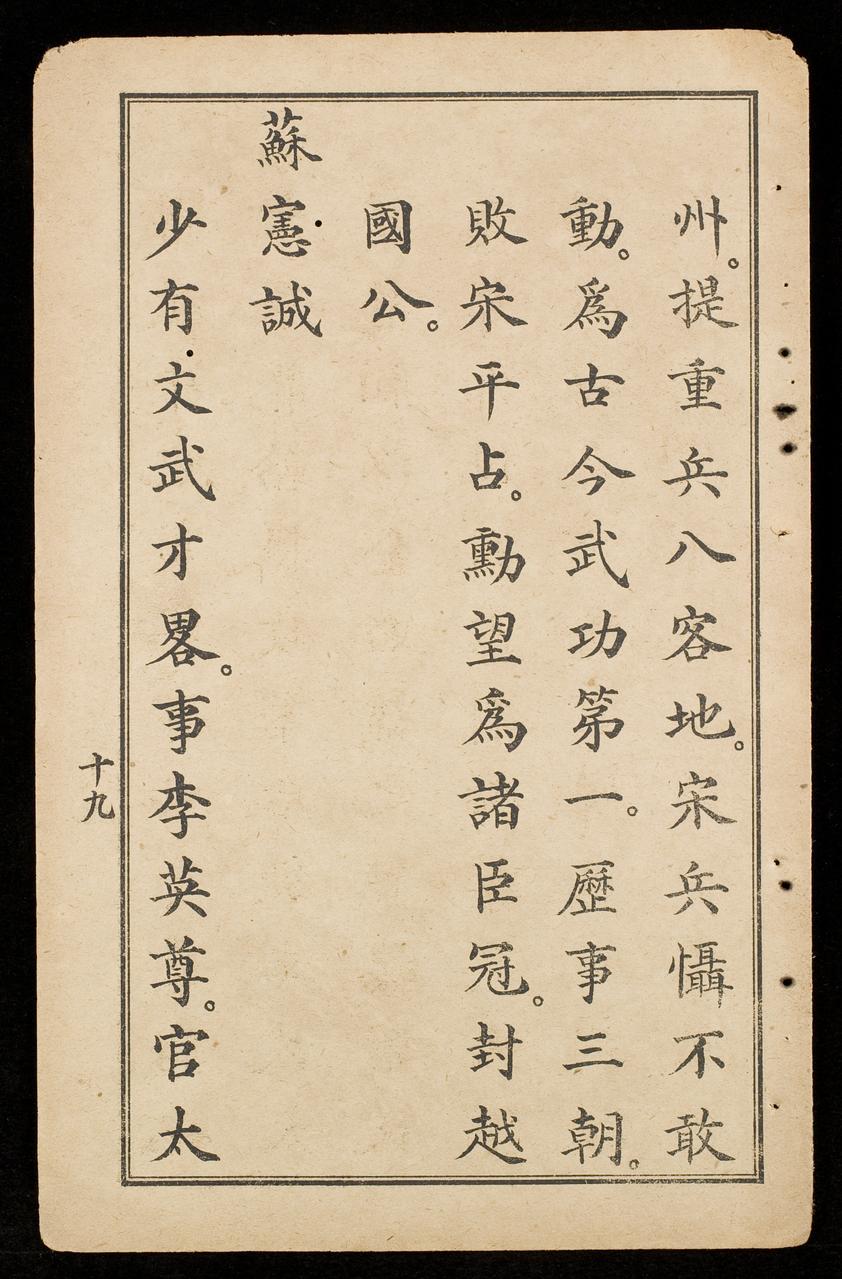 州。提重兵八客地。宋兵懾不敢
動。爲古今武功第一。歷事三朝。
敗宋平占。勳望爲諸臣冠。封越
國公。
蘇憲誠
少有文武才畧。事李英尊。官太
十九